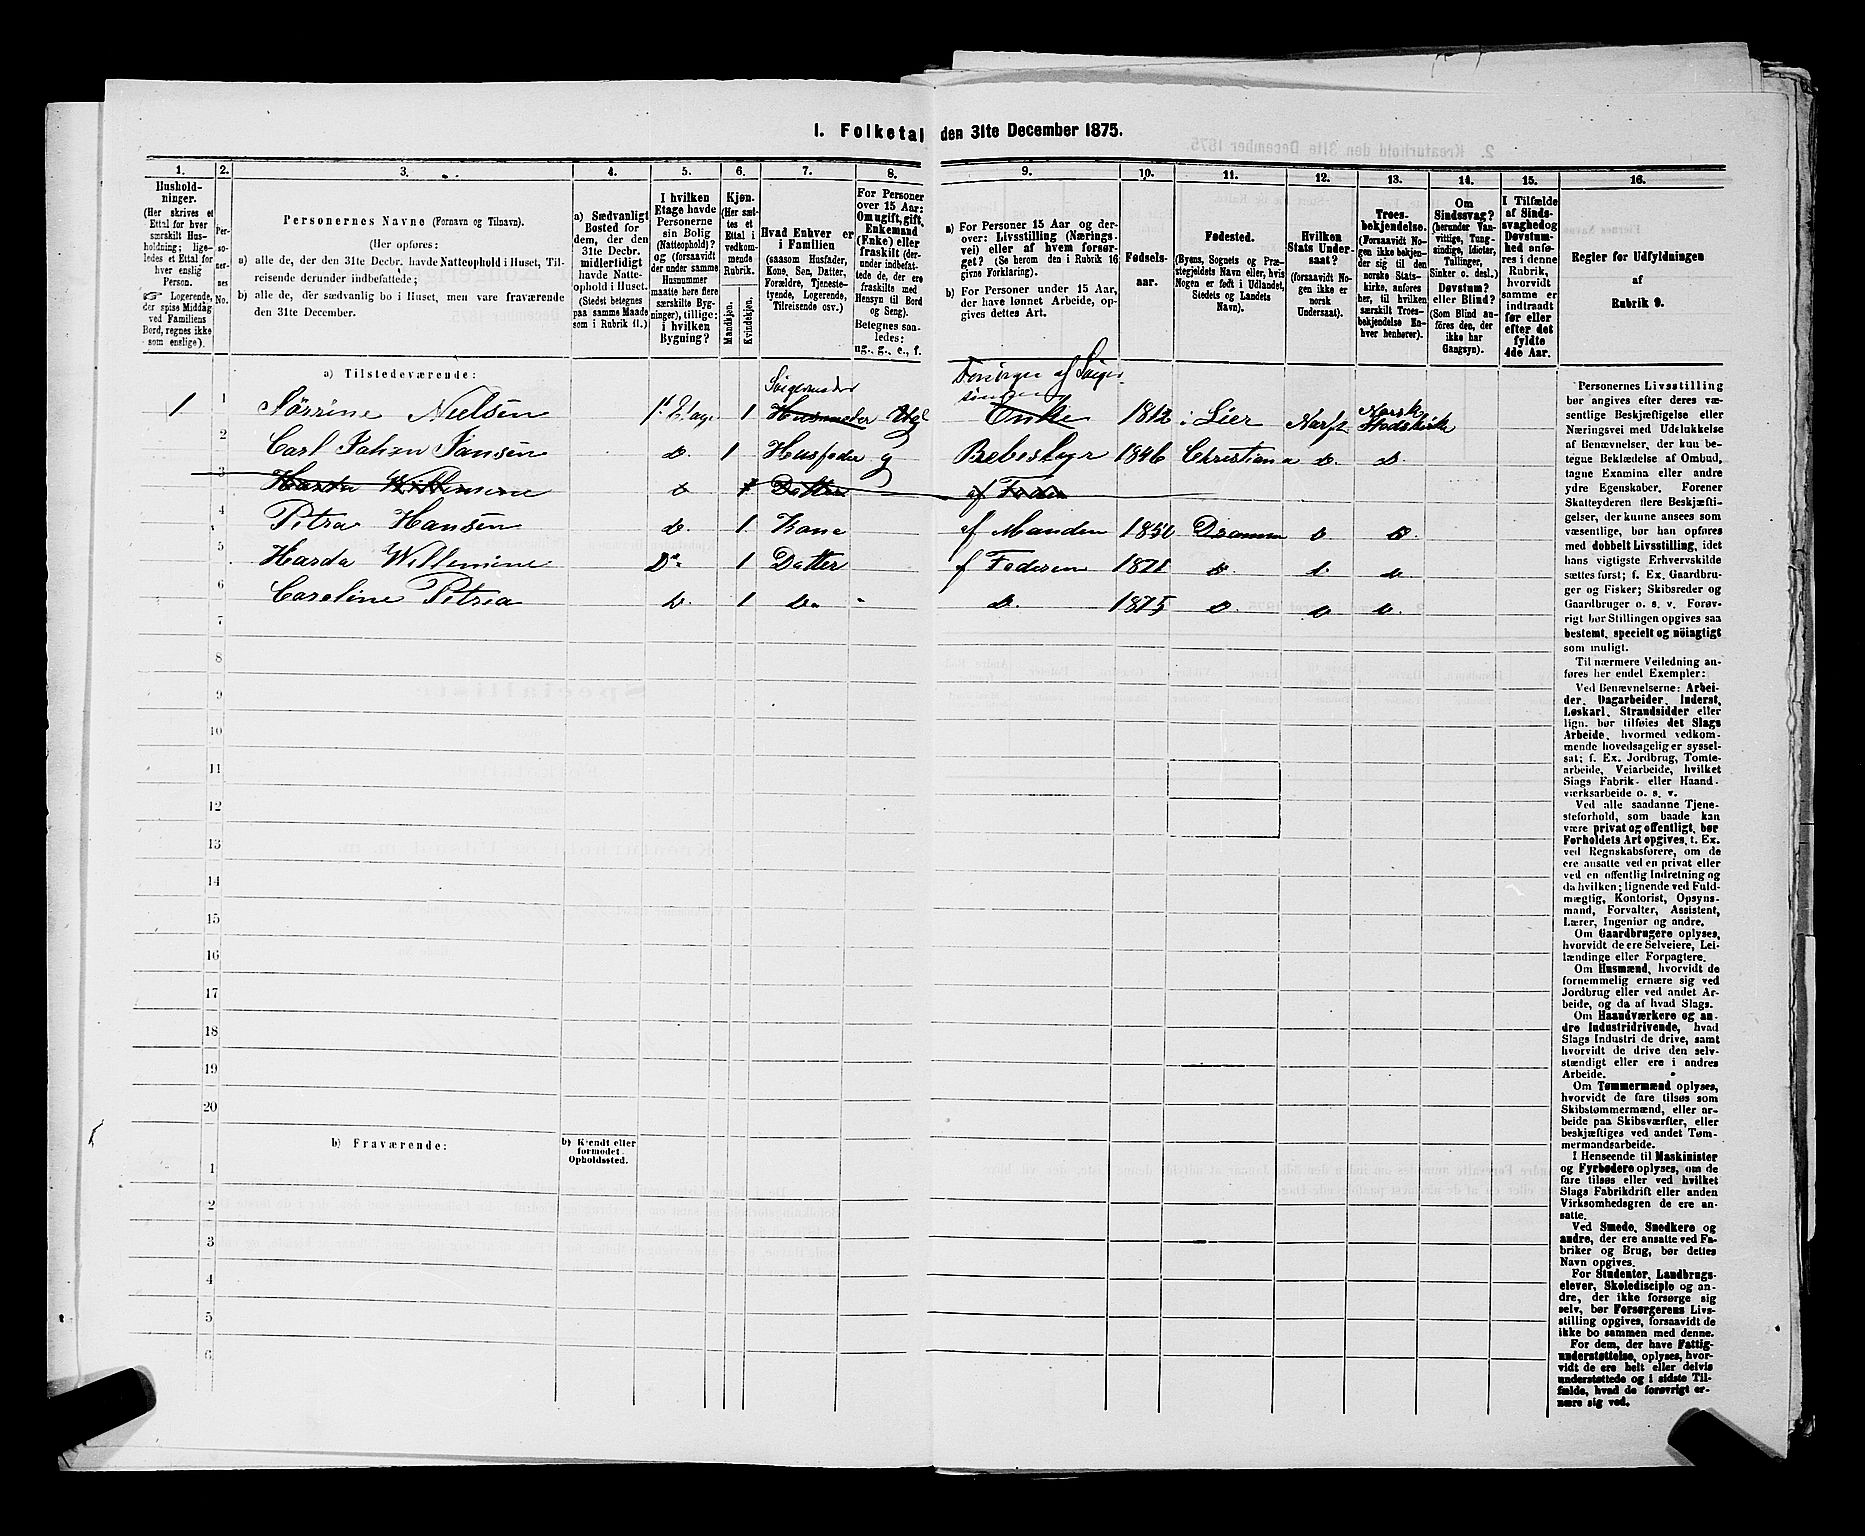 I. Folketal den 31te December 1875.
1. 2. 3. 4. 5. 6. 7. 8. 9. 10. 11. 12. 13. 14. 15. 16.
Hushold-
ninger.
(Her skrives et
Ettal for hver
særskilt Hus-
holdning; lige-
ledes et Ettal for
hver enslig
Person.
☞ Logerende,
der spise Middag
ved Familiens
Bord, regnes ikke
som enslige).
Per-
so-
ner-
nes
No.
Personernes Navne (Fornavn og Tilnavn).
(Her opføres:
a) alle de, der den 31te Decbr. havde Natteophold i Huset, Til-
reisende derunder indbefattede;
b) alle de, der sædvanlig bo i Huset, men vare fraværende
den 31te December.
a) Sædvanligt
Bosted for
dem, der den
31te Decbr.
midlertidigt
havde Natte-
ophold i Huset.
(Stedet betegnes
paa samme Maade
som i Rubrik 11.)
I hvilken
Etage havde
Personerne
sin Bolig
(Natteophold)?
og (forsaavidt
der under samme
Husnummer
maatte høre flere
særskilte Byg-
ninger), tillige:
i hvilken
Bygning?
Kjøn.
(Her sæt-
tes et
Ettal i
vedkom-
mende
Rubrik.
Mandkjøn.
Kvindekjøn.
Hvad Enhver er
i Familien
(saasom Husfader,
Kone, Søn, Datter,
Forældre, Tjeneste-
tyende, Logerende,
Tilreisende osv.)
For Personer
over 15 Aar:
Om ugift, gift,
Enkemand
(Enke) eller
fraskilt (der-
under indbefat-
tede de, der ere
fraskilte med
Hensyn til Bord
og Seng).
Betegnes saa-
ledes:
ug., g., e., f.
a) For Personer 15 Aar og der-
over: Livsstilling (Nærings-
vei) eller af hvem forsør-
get? (Se herom den i Rubrik 16
givne Forklaring).
b) For Personer under 15 Aar,
der have lønnet Arbeide, op-
gives dettes Art.
Fødsels-
aar.
Fødested.
(Byens, Sognets og Præ-
stegjeldets Navn eller, hvis
Nogen er født i Udlandet,
Stedets og Landets
Navn).
Hvilken
Stats Under-
saat?
(forsaavidt No-
gen ikke er
norsk
Undersaat).
Troes-
bekjendelse.
(Forsaavidt No-
gen ikke bekjen-
der sig til den
norske Stats-
kirke, anføres
her, til hvilken
særskilt Troes-
bekjendelse En-
hver henhører).
Om
Sindssvag?
(herunder Van-
vittige, Tung-
sindige, Idioter,
Tullinger,
Sinker o. desl.)
Døvstum?
eller Blind?
(Som Blind an-
føres den, der
ikke har
Gangsyn).
I Tilfælde
af Sinds-
svaghed og
Døvstum-
hed anfø-
res i denne
Rubrik,
hvorvidt
samme er
indtraadt
før eller
efter det
fyldte
4de Aar.
Regler for Udfyldningen
af
Rubrik 9.
a) Tilstedeværende:
1 1 Sørrine Nielsen 1' Etage 1 Svigermoder Husmoder Forsørges af Sviger sønnen Enke 1812 i Lier Norsk Norsk Statskirke
2 Carl Johan Jansen D. 1 Husfader g Bebestøyr 1846 Christiana D. D.
3 Harda Willemine D 1 Datter af Fader
4 Petra Hansen D. 1 Kone af Manden 1850 Drammen D D
5 Harda Willemine Do 1 Datter af Faderen 1871 D. D. D
6 Careline Petrea D. 1 Do - D. 1875 D. D D.
7
8
9
10
11
12
13
14
15
16
17
18
19
20
b) Fraværende:
b) Kjendt eller
formodet
Opholdssted.
1
2
3
4
5
6
Personernes Livsstilling
bør angives efter deres væ-
sentlige Beskjæftigelse eller
Næringsvei med Udelukkelse
af Benævnelser, der kun be-
tegne Beklædelse af Ombud,
tagne Examina eller andre
ydre Egenskaber. Forener
Skatteyderen flere Beskjæfti-
gelser, der kunne ansees som
væsentlige, bør han opføres
med dobbelt Livsstilling, idet
hans vigtigste Erhvervskilde
sættes først; f. Ex. Gaardbru-
ger og Fisker; Skibsreder og
Gaardbruger o. s. v. Forøv-
rigt bør Stillingen opgives saa
bestemt, specielt og nøiagtigt
som muligt.
Til nærmere Veiledning an-
føres her endel Exempler:
Ved Benævnelserne: Arbei-
der, Dagarbeider, Inderst,
Løskarl, Strandsidder eller
lign. bør tilføies det Slags
Arbeide, hvormed vedkom-
mende hovedsagelig er syssel-
sat; f. Ex. Jordbrug, Tomte-
arbeide, Veiarbeide, hvilket
Slags Fabrik- eller Haand-
værksarbeide o. s. v.
Ved alle saadanne Tjene-
steforhold, som baade kan
være privat og offentligt, bør
Forholdets Art opgives, t. Ex.
ved Regnskabsførere, om de
ere ansatte ved en privat eller
ved en offentlig Indretning og
da hvilken; lignende ved Fuld-
mægtig, Kontorist, Opsyns-
mand, Forvalter, Assistent,
Lærer, Ingeniør og andre.
Om Gaardbrugere oplyses,
hvorvidt de ere Selveiere, Lei-
lændinge eller Forpagtere.
Om Husmænd, hvorvidt de
fornemmelig ernære sig ved
Jordbrug eller ved andet Ar-
beide, og da af hvad Slags.
Om Haandværkere og an-
dre Industridrivende, hvad
Slags Industri de drive, samt
hvorvidt de drive den selv-
stændigt eller ere i andres
Arbeide.
Om Tømmermænd oplyses,
hvorvidt de fare tilsøs som
Skibstømmermænd, eller ar-
beide paa Skibsværfter, eller
beskjæftiges ved andet Tøm-
mermandsarbeide.
I Henseende til Maskinister
og Fyrbødere oplyses, om de
fare tilsøs eller ved hvilket
Slags Fabrikdrift eller anden
Virksomhedsgren de ere an-
satte.
Ved Smede, Snedkere og
andre, der ere ansatte ved Fa-
briker og Brug, bør dettes
Navn opgives.
For Studenter, Landbrugs-
elever, Skoledisciple og an-
dre, der ikke forsørge sig
selv, bør Forsørgerens Livs-
stilling opgives, forsaavidt de
ikke bo sammen med denne.
For dem, der have Fattig-
understøttelse, oplyses, hvor-
vidt de ere helt eller delvis
understøttede og i sidste Til-
fælde, hvad de forøvrigt er-
nære sig ved.